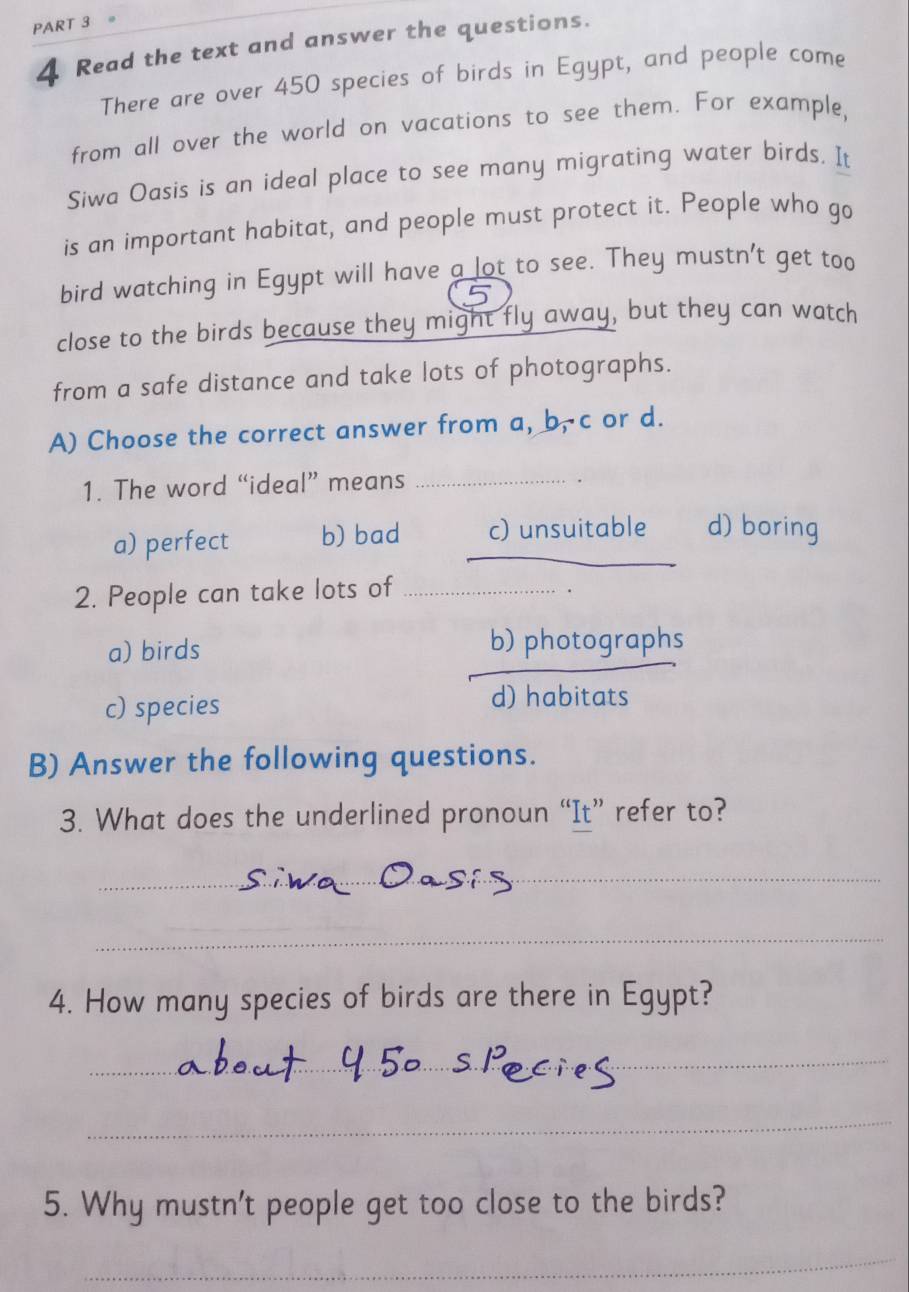 PART 3
4 Read the text and answer the questions.
There are over 450 species of birds in Egypt, and people come
from all over the world on vacations to see them. For example,
Siwa Oasis is an ideal place to see many migrating water birds. It
is an important habitat, and people must protect it. People who go
bird watching in Egypt will have a lot to see. They mustn't get too
5
close to the birds because they might fly away, but they can watch
from a safe distance and take lots of photographs.
A) Choose the correct answer from a, b, c or d.
1. The word “ideal” means .................... .
a) perfect b) bad c) unsuitable d) boring
2. People can take lots of .................... .
a) birds b) photographs
c) species d) habitats
B) Answer the following questions.
3. What does the underlined pronoun “It” refer to?
Siwa Oasis
4. How many species of birds are there in Egypt?
about 450 species
5. Why mustn't people get too close to the birds?